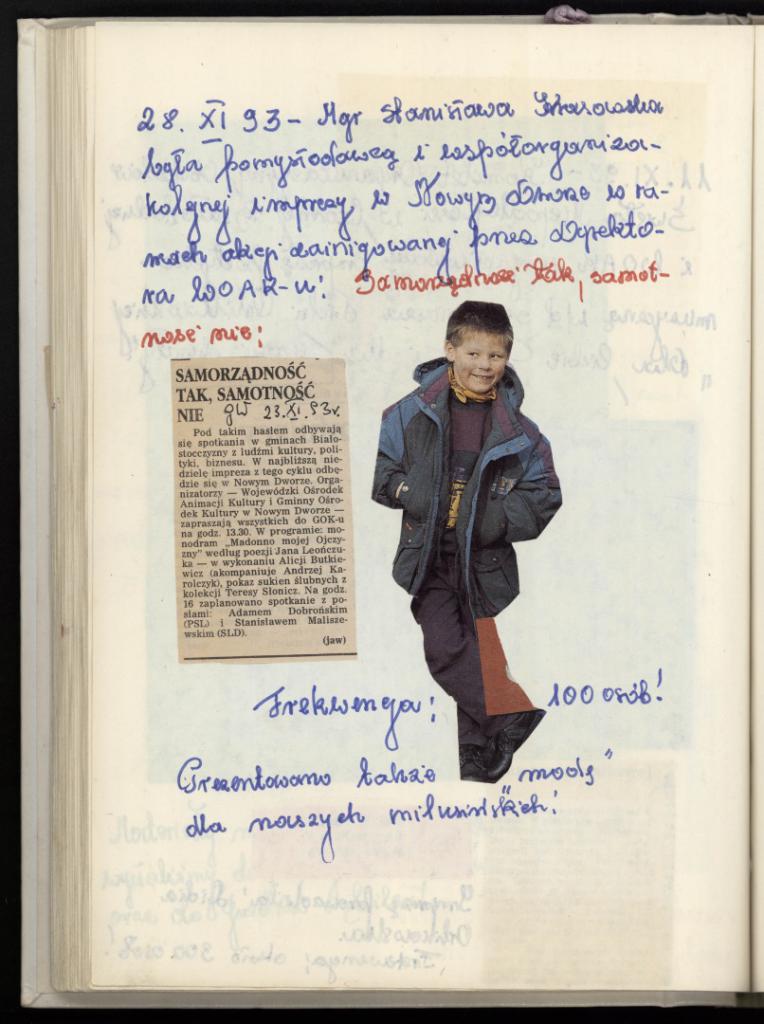 28. XI 93 - Mgr Stanisława
była pomysłodawcą i współorganiza-
torką kolejnej imprezy w Nowym Dworze w ra-
mach akcji zainicjowanej przez Dyrekto-
ra WOAK-u! Samorządność tak, samot-
ność nie!
SAMORZĄDNOŚĆ
TAK, SAMOTNOŚĆ
NIE GW 23.XI.93r.
Pod takim hasłem odbywają
się spotkania w gminach Biało-
stocczyzny z ludźmi kultury, poli-
tyki, biznesu. W najbliższą nie-
dzielę impreza z tego cyklu odbę-
dzie się w Nowym Dworze. Orga-
nizatorzy — Wojewódzki Ośrodek
Animacji Kultury i Gminny Ośro-
dek Kultury w Nowym Dworze —
zapraszają wszystkich do GOK-u
na godz. 13.30. W programie: mo-
nodram „Madonno mojej Ojczy-
zny" według poezji Jana Leończu-
ka — w wykonaniu Alicji Butkie-
wicz (akompaniuje Andrzej Ka-
rolczyk), pokaz sukien ślubnych z
kolekcji Teresy Słonicz. Na godz.
16 zaplanowano spotkanie z po-
słami: Adamem Dobrońskim
(PSL) i Stanisławem Malisze-
wskim (SLD).
(jaw)
Frekwencja: 100 osób!
Prezentowano także „modę"
dla naszych milusińskich!